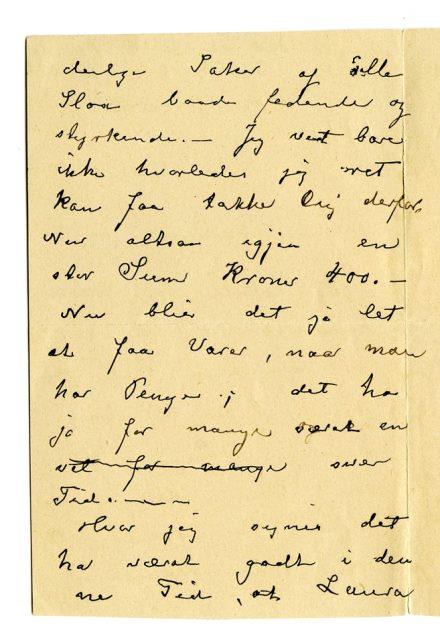 deilige Saker af alle
Slag baade fedende og
styrkende. — Jeg vest bare
ikke hvorledes jeg ret
kan faa takke Dig derfor.
Nu altsaa igjen en
stor Sum Kroner 400. —
Nu blir det jo let
at faa Varer, naar man
har Penge; det har
jo for mange været en
vet for mange svær
Tid. — — —
Hvor jeg synes det
har været godt i den
ne Tid, at Laura